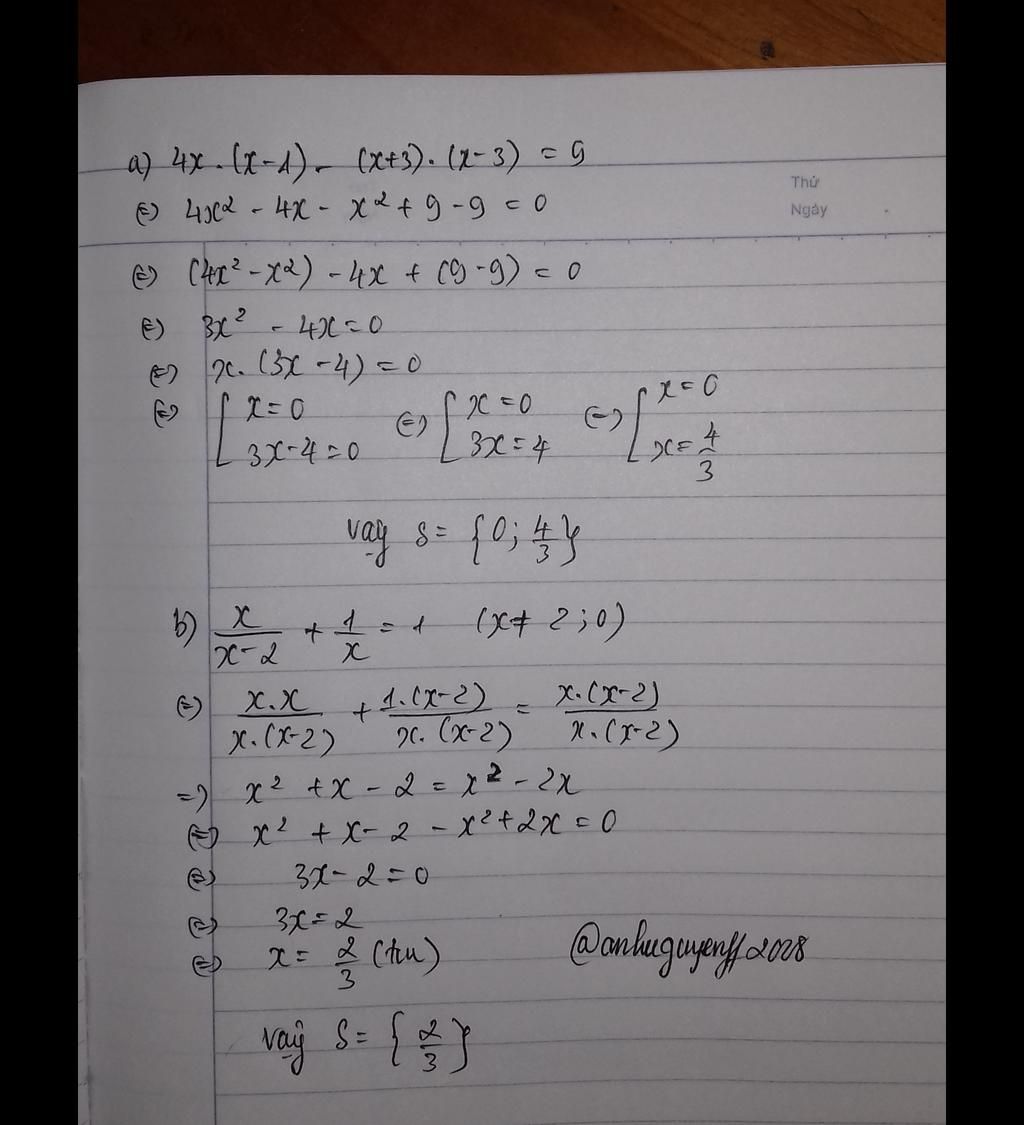 a) 4x.(x-1) - (x+3).(x-3) = 9
Thứ
(=) 4x² - 4x - x² + 9 - 9 = 0
Ngày
(=) (4x² - x²) - 4x + (9-9) = 0
(=) 3x² - 4x = 0
(=) x.(3x-4) = 0
(=) [ x=0 ; 3x-4=0 (=) [ x=0 ; 3x=4 (=) [ x=0 ; x=4/3
vậy S = {0; 4/3}
b) x/(x-2) + 1/x = 1 (x≠2;0)
(=) x.x/x.(x-2) + 1.(x-2)/x.(x-2) = x.(x-2)/x.(x-2)
=) x² + x - 2 = x² - 2x
(=) x² + x - 2 - x² + 2x = 0
(=) 3x - 2 = 0
(=) 3x = 2
(=) x = 2/3 (tm)
vậy S = {2/3}